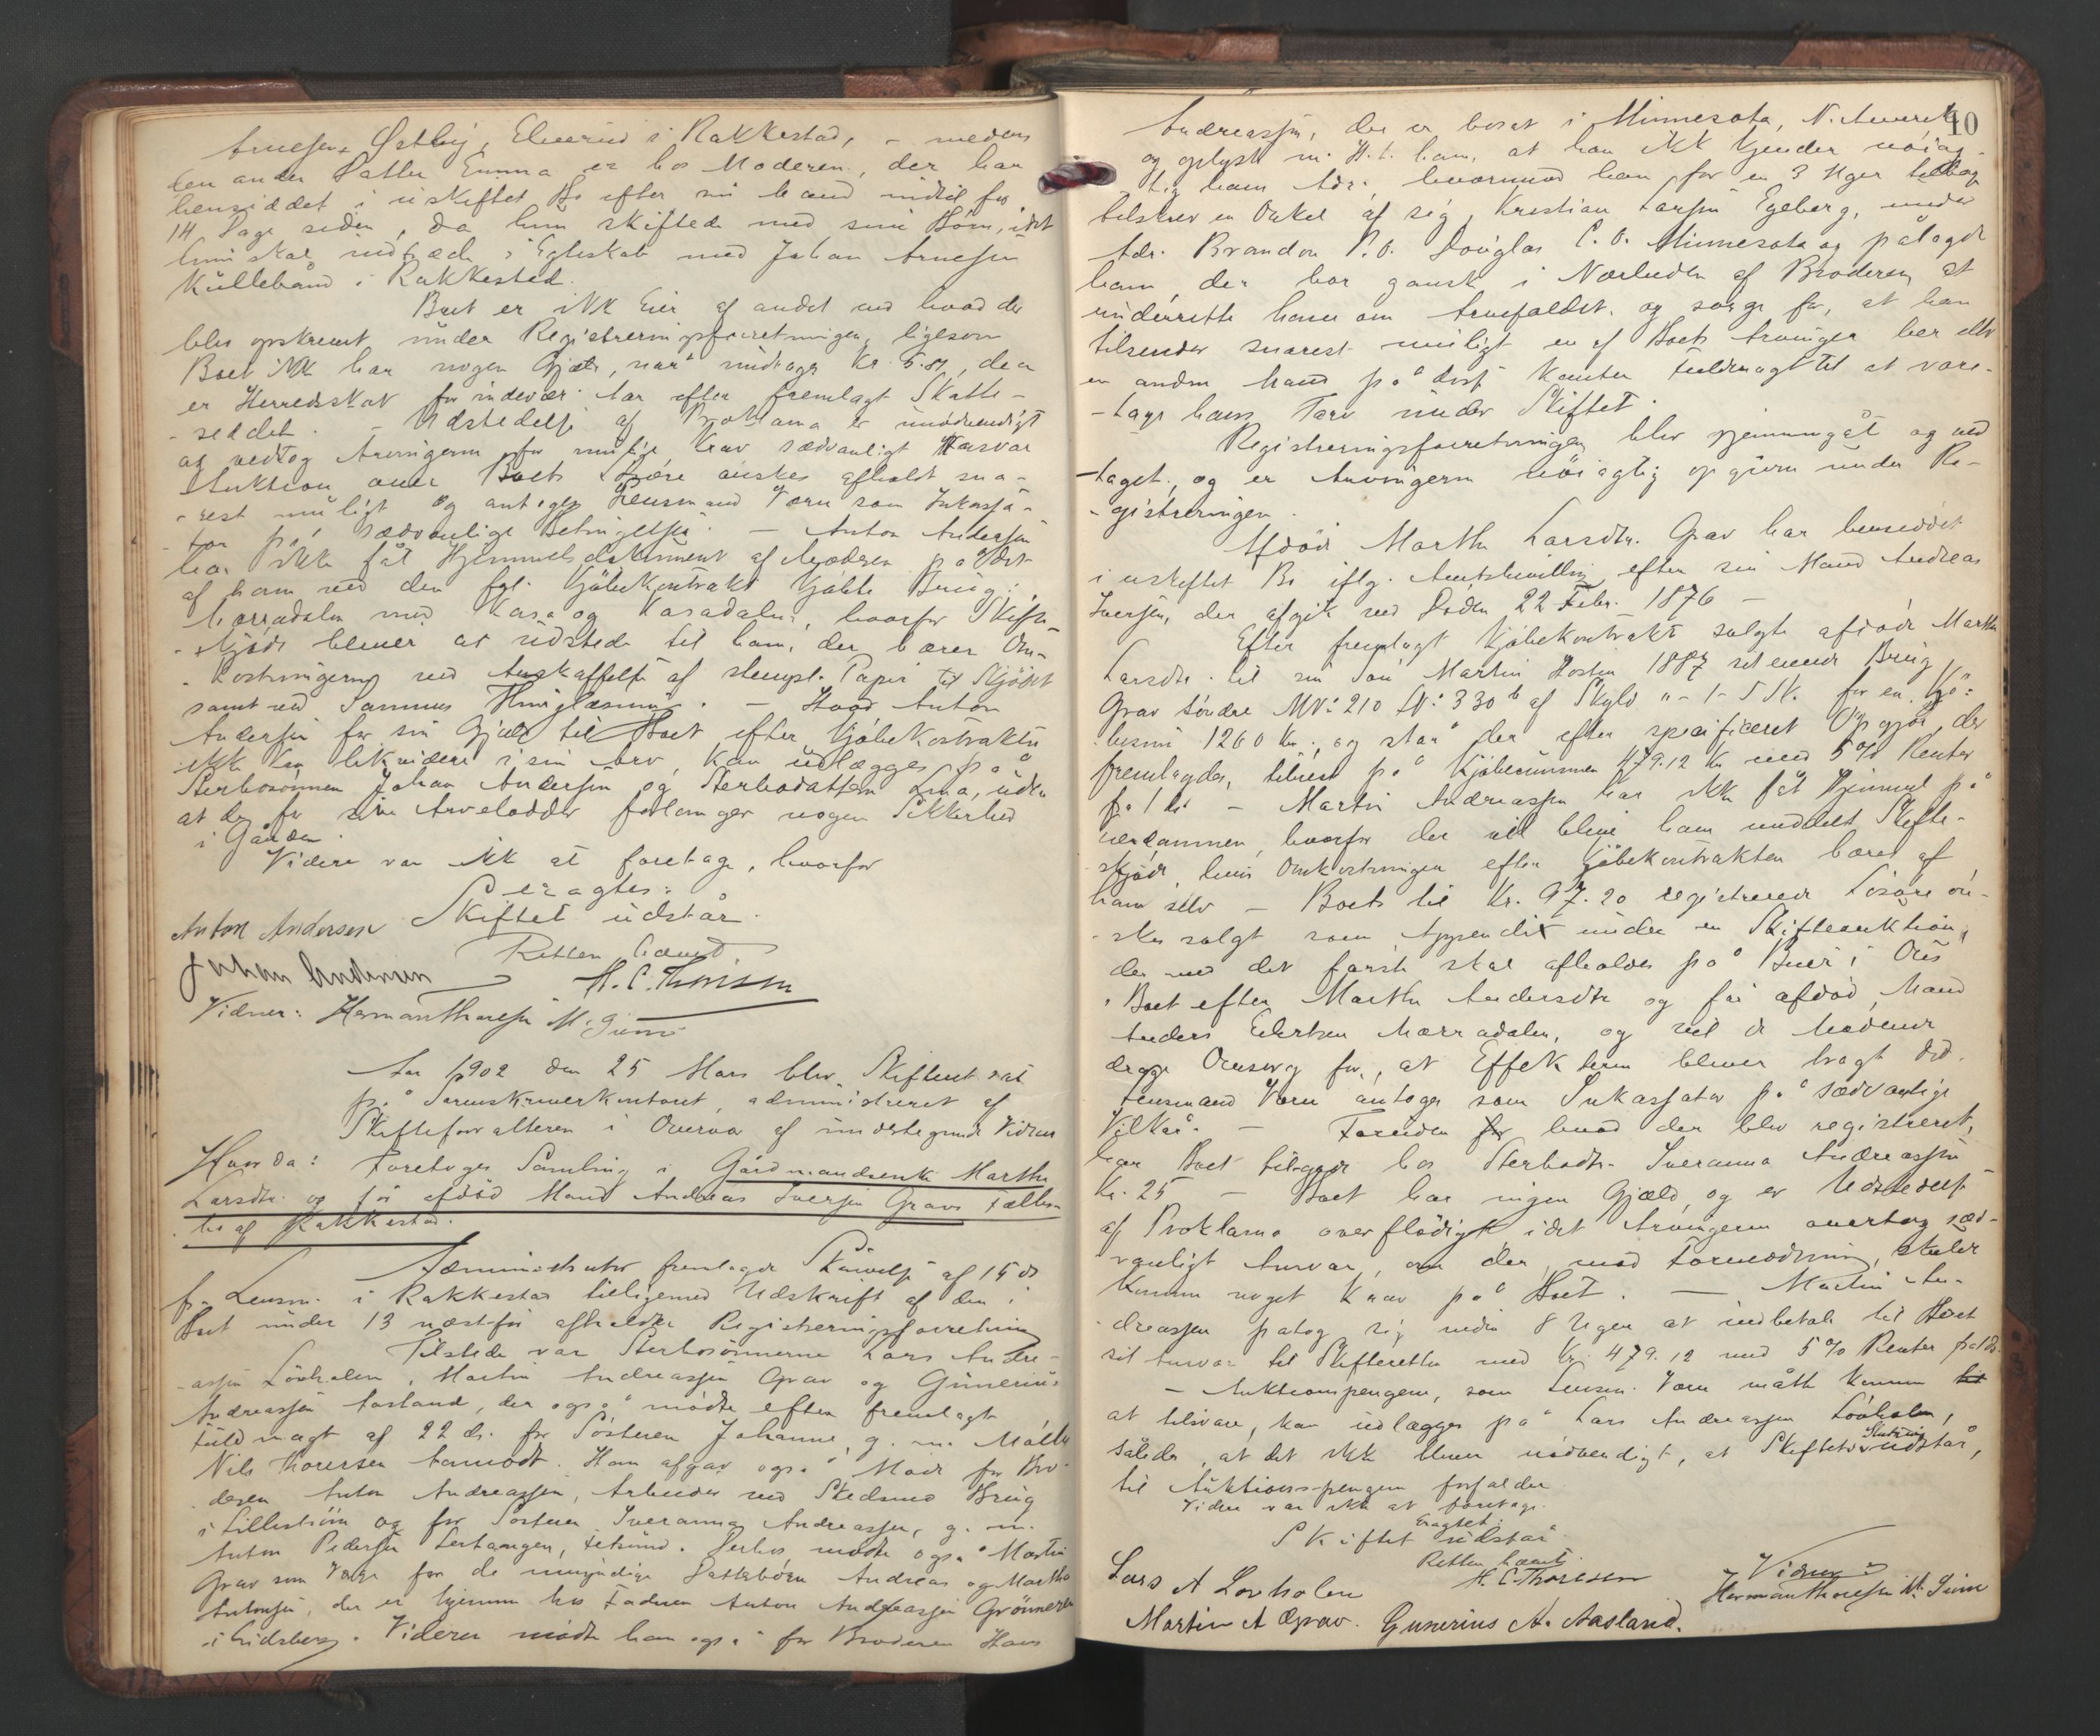 Arnesen Østby, Elverud i Rakkestad, – medens
den anden Datter Emma er hos Moderen, der har
hensiddet i uskiftet Bo efter sin Mand indtil for
14 Dage siden, da hun skiftede med sine Börn, idet
hun skal indtræde i Egteskab med Johan Arnesen
Küllebünd i Rakkestad.
Boet er ikke Eier af andet end hvad der
blev opskrevet under Registreringsforretningen, ligesom
Boet ikke har nogen Gjæld, når undtages Kr. 5.81, der
er Herredsskat for indevær. Aar efter fremlagt Skatte-
-seddel. – Udstedelse af Proklama er unödvendigt
og vedtog Arvingerne for mulige Krav sædvanligt Ansvar
Auktion over Boets Lösöre önskes afholdt sna-
-rest muligt og antages Lensmand Vorn som Inkassa-
-tor på sædvanlige Betingelser. – Anton Andersen
har ikke fåt Hjemmelsdokument af Moderen på det
af ham ved den fgl. Kjöbekontrakt kjöbte Brug:
Mærradalen med Kasa og Kasadalen, hvorfor Skifte-
-skjöde bliver at udstede til ham, der bærer Om-
-kostningerne ved Anskaffelse af stempl. Papir til Skjödet
samt ved Sammes Thinglæsning. – Hvad Anton
Andersen for sin Gjæld til Boet efter Kjöbekontrakten
ikke kan likvidere i sin Arv, kan udlægges på
Sterbosönnen Johan Andersen og Sterbodatteren Lina, uden
at de for sine Arvelodder forlanger nogen Sikkerhed
i Gården.
Videre var ikke at foretage, hvorfor
Eragtes:
Skiftet udstår.
Anton Andersen
Retten hævet
Johan Andersen
H. C. Thoresen
Vidner: Herman Thoresen M. Sunn
Aar 1902 den 25 Mars blev Skifteret sat
på Sorenskriverkontoret, administreret af
Skifteforvalteren i Overvær af undertegnede Vidner
Hvorda: Foretoges Samling i Gårdmandsenke Marthe
Larsdtr. og för afdöd Mand Andreas Iversen Gravs Fælles-
bo af Rakkestad.
Administrator fremlagde Skrivelse af 15 ds
fra Lensm. i Rakkestad tilligemed Udskrift af den i
Boet under 13 næstför afholdte Registreringsforretning
Tilstede var Sterbosönnerne Lars Andre-
-assen Lövholen, Martin Andreassen Grav og Gunerius
Andreassen Aasland, der også mödte efter fremlagt
Fuldmagt af 22 ds. for Sösteren Johanne, g. m. Möller
Nils Thoresen Aamodt. Han afgav også Möde for Bro-
deren Anton Andreassen, Arbeider ved Skedsmo Brug
i Lilleström og for Sösteren Iveranna Andreassen, g. m.
Anton Pedersen Lertangen, Fetsund. Derhos mödte også Martin
Grav som Værge for de umyndige Dattebörn Andreas og Martha
Antonsen, der er hjemme hos Faderen Anton Andreassen Grönneren
i Eidsberg. Videre mödte han også for Broderen Hans
10
Andreassen, der er bosat i Minnesota, N. Amerika
og oplyste m. H. t. ham, at han ikke kjender nöiag-
tig hans Adr., hvormod han for en 3 Uger tilbage
tilskrev en Onkel af sig, Kristian Larsen Egeberg, under
Adr. Brandon P.O. Douglas C.O. Minnesota og pålagde
ham, der bor ganske i Nærheden af Broderen, at
underrette ham om Arvefaldet og sörge for, at han
tilsender snarest muligt en af Boets Arvinger her eller
en anden Mand på disse Kanter Fuldmagt til at vare-
-tage hans Tarv under Skiftet.
Registreringsforretningen blev gjennemgåt og ved
-taget, og er Arvingerne nöiagtig opgivne under Re-
-gistreringen.
Afdöde Marthe Larsdtr. Grav har hensiddet
i uskiftet Bo iflg. Amtsbevilling efter sin Mand Andreas
Iversen, der afgik ved Döden 22 Febr. 1876 –
Efter fremlagt Kjöbekontrakt solgte afdöde Marthe
Larsdtr. til sin Sön Martin Hösten 1887 sit eiende Brug
Grav söndre MN: 210 LN: 330 b af Skyld " – 1 – 5 Sk. for en Kjö-
besum 1260 Kr., og står der efter specificeret Opgjör, der
fremlagdes, tilrest på Kjöbesummen 479.12 Kr med 5% Renter
fra 1 ds – Martin Andreassen har ikke fåt Hjemmel på
Eiendommen, hvorfor der vil blive ham meddelt Skifte-
-skjöde, hvis Omkostninger efter Kjöbekontrakten bæres af
ham selv – Boets til Kr. 97.20 registrerede Lösöre ön-
-skes solgt som Appendix under en Skifteauktion,
der med det förste skal afholdes på Buer i Ous
i Boet efter Marthe Andersdtr og för afdöd Mand
Anders Eilertsen Mærradalen, og vil de Mödende
drage Omsorg for, at Effekterne bliver bragt did.
Lensmand Vorn antoges som Inkassator på sædvanlige
Vilkår. – Foruden hvad der blev registreret,
har Boet tilgode hos Sterbodtr. Iveranna Andreassen
Kr. 25 – Boet har ingen Gjæld, og er Udstedelse
af Proklama overflödigt, idet Arvingerne overtog sæd-
vanligt Ansvar, om der, mod Formodning, skulde
komme noget Krav på Boet. – Martin An-
dreassen påtog sig inden 8 Uger at indbetale til Boet
sit Ansvar til Skifteretten med Kr. 479.12 med 5% Renter fra 1 ds.
– Auktionspengene, som Lensm. Vorn måtte komme
at tilsvare, kan udlægges på Lars Andreassen Lövholen,
således, at det ikke bliver nödvendigt, at Skiftets Slutning udstår,
til Auktionspengene forfalder.
Videre var ikke at foretage.
Eragtet:
Skiftet udstår
Retten hævet.
H. C. Thoresen
Vidner:
Herman Thoresen M. Sunn
Lars A Lovholen
Martin A Grav. Gunerius A. Aasland.